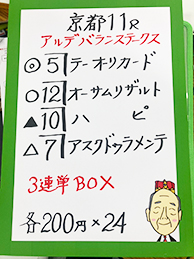 京都11R
アルデバランステークス
◎5 テーオリカード
○12 オーサムリザルト
▲10 ハピ
△7 アスクドゥラメンテ
3連単BOX
各200円×24